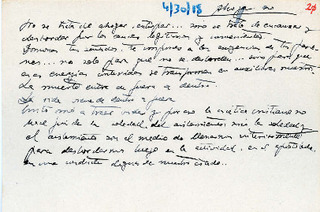 4/30/18
24
No se trata de ahogar, extirpar... sino se trata de encauzar y
desbordar por los cauces legítimos y convenientes
Dominar tus sentidos... te impones a las exigencias de tus
nes... no solo para que no se desborden... sino para que
esas energías contenidas se transformen en auxiliares nuestros.
La muerte entra de fuera a dentro.
La vida nace de dentro a fuera
vida y por eso la mística cristiana no
es de la soledad, del aislamiento sino la soledad y
el aislamiento son el medio de llenarnos interiormente
para desbordarnos luego en la actividad, en el apostolado,
en una conducta digna de nuestro estado..